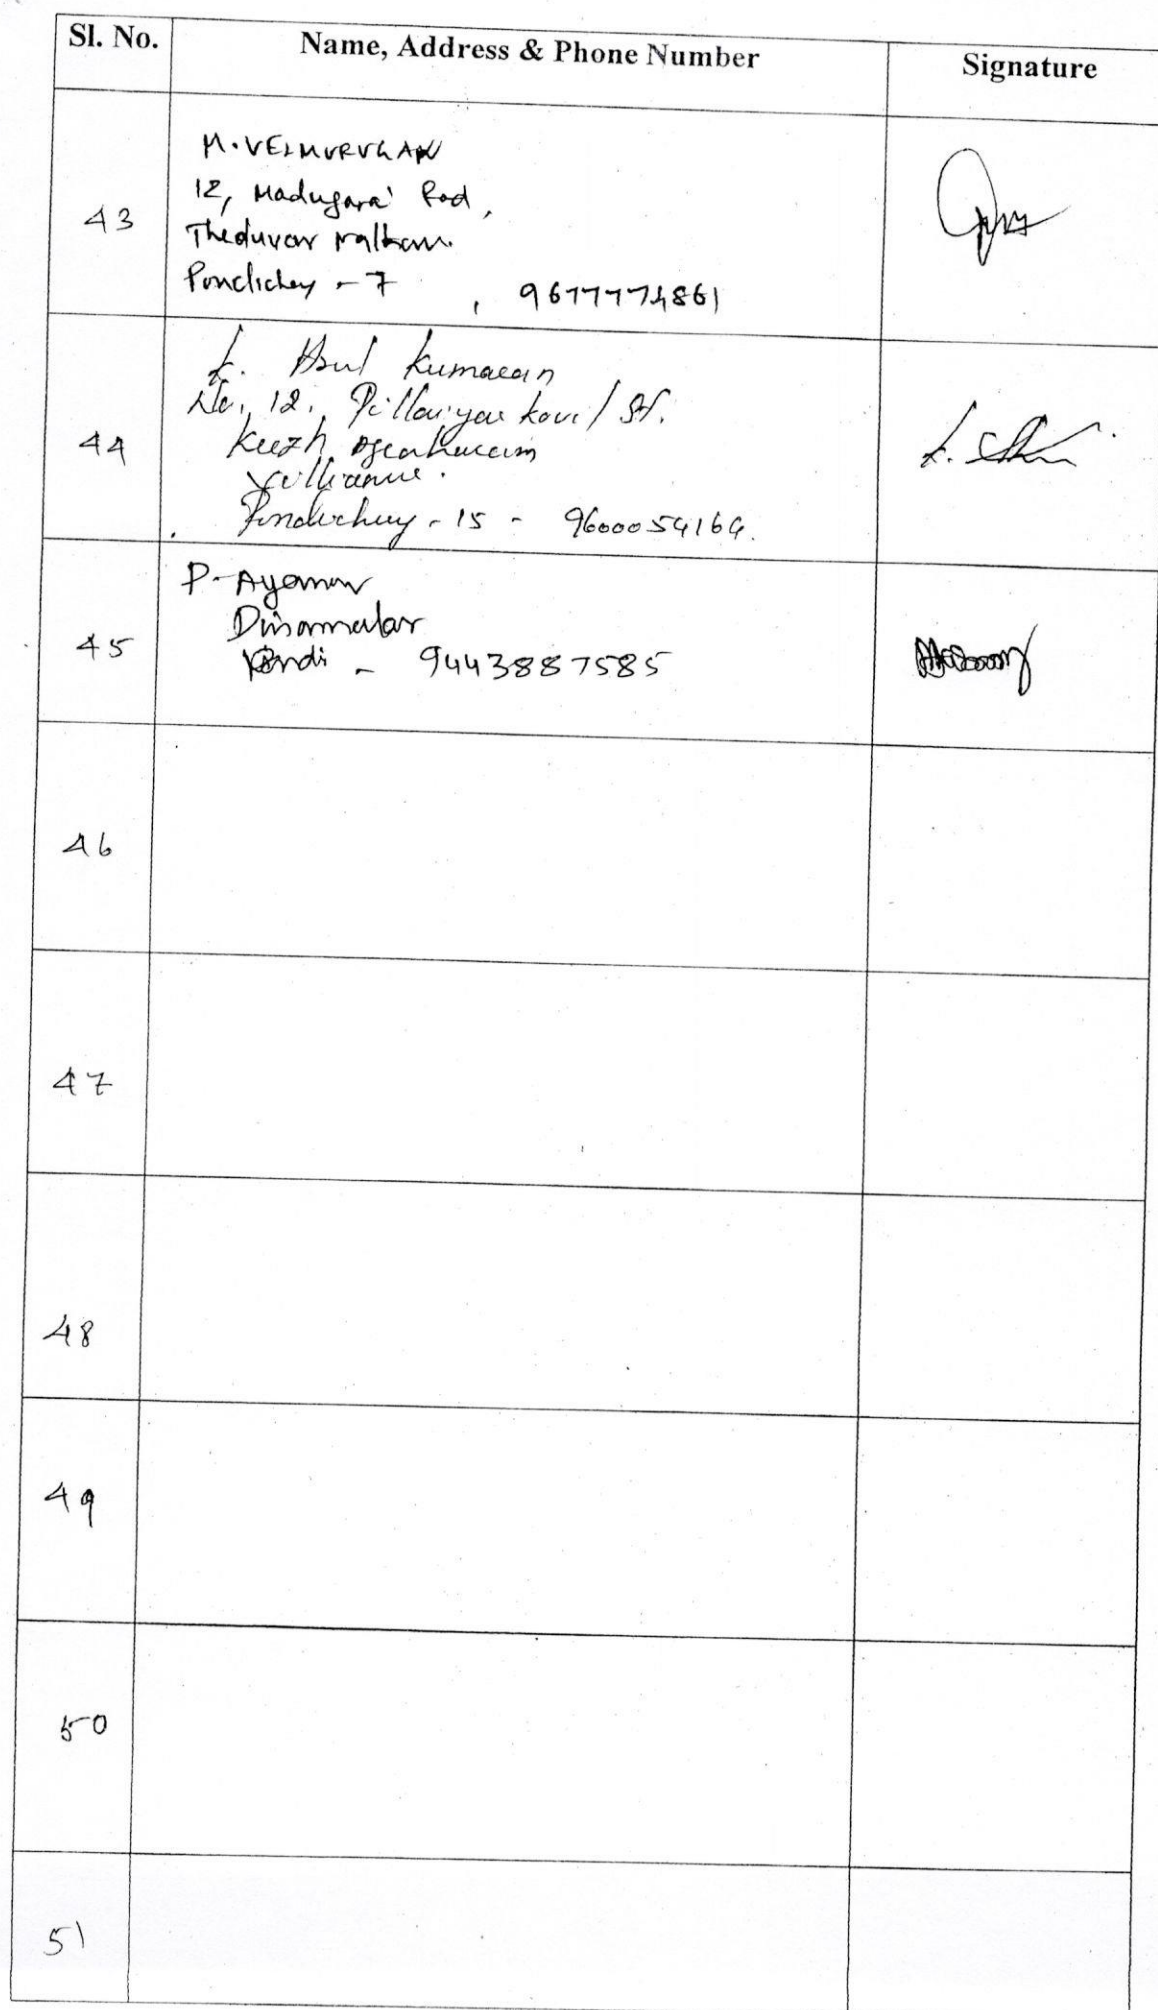 Sl. No. Name, Address & Phone Number Signature
43
M. VELMURUGAN
12, Madugarai Rod,
Pondichey - 7 , 9677774861
44
Kumaran
No. 12. Pillaiyar kovil St.
Keezh
Pondicherry - 15 - 9600054164.
45
P. Ayanar
Dinamalar
Pondi - 9443887585
46
47
48
49
50
51